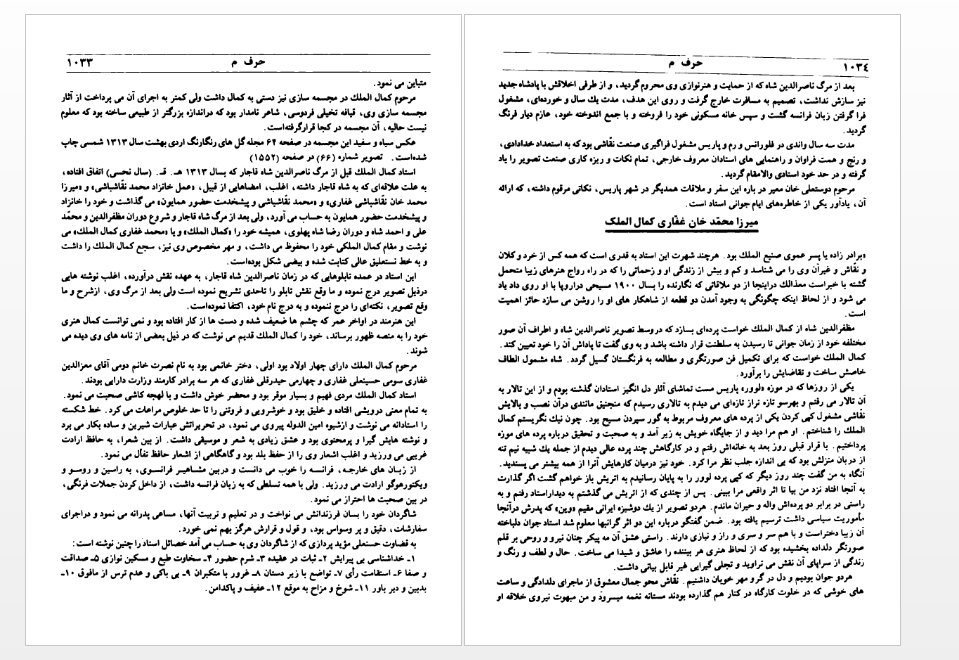 حرف م ۱۰۳۳
متباین می نمود.
مرحوم کمال الملك در مجسمه سازی نیز دستی به کمال داشت ولی کمتر به اجرای آن می پرداخت از آثار
مجسمه سازی وی، قیافه تخیلی فردوسی، شاعر نامدار بود که دراندازه بزرگتر از طبیعی ساخته بود که معلوم
نیست حالیه، آن مجسمه در کجا قرارگرفته‌است.
عکس سیاه و سفید این مجسمه در صفحه ۶۴ مجله گل های رنگارنگ اردی بهشت سال ۱۳۱۳ شمسی چاپ
شده‌است. تصویر شماره (۶۶) در صفحه (۱۵۵۲)
استاد کمال الملك قبل از مرگ ناصرالدین شاه قاجار که بسال ۱۳۱۳ هـ. ق. (سال نحسی) اتفاق افتاده،
به علت علاقه‌ای که به شاه قاجار داشته، اغلب، امضاهایی از قبیل، «عمل خانزاد محمد نقاشباشی» و «میرزا
محمد خان نقاشباشی غفاری» و «محمد نقاشباشی و پیشخدمت حضور همایون» می گذاشت و خود را خانزاد
و پیشخدمت حضور همایون به حساب می آورد، ولی بعد از مرگ شاه قاجار و شروع دوران مظفرالدین و محمّد
علی و احمد شاه و دوران رضا شاه پهلوی، همیشه خود را «کمال الملك» و یا «محمد غفاری کمال الملك» می
نوشت و مقام کمال الملکی خود را محفوظ می داشت، و مهر مخصوص وی نیز، سجع کمال الملك را داشت
و به خط نستعلیق عالی کتابت شده و بیضی شکل بوده‌است.
این استاد در عمده تابلوهایی که در زمان ناصرالدین شاه قاجار، به عهده نقش درآورده، اغلب نوشته هایی
درذیل تصویر درج نموده و ما وقع نقش تابلو را تاحدی تشریح نموده است ولی بعد از مرگ وی، ازشرح و ما
وقع تصویر، نکته‌ای را درج ننموده و به درج نام خود، اکتفا نموده‌است.
این هنرمند در اواخر عمر که چشم ها ضعیف شده و دست ها از کار افتاده بود و نمی توانست کمال هنری
خود را به منصه ظهور برساند، خود را کمال الملك قدیم می نوشت که در ذیل بعضی از نامه های وی دیده می
شوند.
مرحوم کمال الملك دارای چهار اولاد بود اولی، دختر خانمی بود به نام نصرت خانم دومی آقای معزالدین
غفاری سومی حسینعلی غفاری و چهارمی حیدرقلی غفاری که هر سه برادر کارمند وزارت دارایی بودند.
استاد کمال الملك مردی فهیم و بسیار موقر بود و محضر خوش داشت و با لهجه کاشی صحبت می نمود.
به تمام معنی درویشی افتاده و خلیق بود و خوشرویی و فروتنی را تا حد خلوص مراعات می کرد. خط شکسته
را استادانه می نوشت و ازشیوه امین الدوله پیروی می نمود، در تحریراتش عبارات شیرین و ساده بکار می برد
و نوشته هایش گیرا و پرمحتوی بود و عشق زیادی به شعر و موسیقی داشت. از بین شعرا، به حافظ ارادت
غریبی می ورزید و اغلب اشعار وی را از حفظ بلد بود و گاهگاهی از اشعار حافظ تفأل می نمود.
از زبان های خارجه، فرانسه را خوب می دانست و دربین مشاهیر فرانسوی، به راسین و روسو و
ویکتورهوگو ارادت می ورزید. ولی با همه تسلطی که به زبان فرانسه داشت، از داخل کردن جملات فرنگی،
در بین صحبت ها احتراز می نمود.
شاگردان خود را بسان فرزندانش می نواخت و در تعلیم و تربیت آنها، مساعی پدرانه می نمود و دراجرای
سفارشات، دقیق و پر وسواس بود، و قول و قرارش هرگز بهم نمی خورد.
به قضاوت حسنعلی مؤید پردازی که از شاگردان وی به حساب می آمد خصائل استاد را چنین نوشته است:
۱ـ خداشناسی بی پیرایش ۲ـ ثبات در عقیده ۳ـ شرم حضور ۴ـ سخاوت طبع و مسکین نوازی ۵ـ صداقت
و صفا ۶ـ استقامت رأی ۷ـ تواضع با زیر دستان ۸ـ غرور با متکبران ۹ـ بی باکی و عدم ترس از مافوق ۱۰ـ
بدبین و دیر باور ۱۱ـ شوخ و مزاح به موقع ۱۲ـ عفیف و پاکدامن.
حرف م ۱۰۳٤
بعد از مرگ ناصرالدین شاه که از حمایت و هنرنوازی وی محروم گردید، و از طرفی اخلاقش با پادشاه جدید
نیز سازش نداشت، تصمیم به مسافرت خارج گرفت و روی این هدف، مدت یك سال و خورده‌ای، مشغول
فرا گرفتن زبان فرانسه گشت و سپس خانه مسکونی خود را فروخته و با جمع اندوخته خود، عازم دیار فرنگ
گردید.
مدت سه سال واندی در فلورانس و رم و پاریس مشغول فراگیری صنعت نقّاشی بود که به استعداد خدادادی،
و رنج و همت فراوان و راهنمایی های استادان معروف خارجی، تمام نکات و ریزه کاری صنعت تصویر را یاد
گرفته و در حد خود استادی والامقام گردید.
مرحوم دوستعلی خان معیر در باره این سفر و ملاقات همدیگر در شهر پاریس، نکاتی مرقوم داشته، که ارائه
آن، یادآور یکی از خاطره‌های ایام جوانی استاد است.
میرزا محمّد خان غفّاری کمال الملک
«برادر زاده یا پسر عموی صنیع الملك بود. هرچند شهرت این استاد به قدری است که همه کس از خرد و کلان
و نقّاش و غیرآن وی را می شناسد و کم و بیش از زندگی او و زحماتی را که در راه رواج هنرهای زیبا متحمل
گشته با خبراست معذالك دراینجا از دو ملاقاتی که نگارنده را بسال ۱۹۰۰ مسیحی دراروپا با او روی داد یاد
می شود و از لحاظ اینکه چگونگی به وجود آمدن دو قطعه از شاهکار های او را روشن می سازد حائز اهمیت
است.
مظفرالدین شاه از کمال الملك خواست پرده‌ای بسازد که دروسط تصویر ناصرالدین شاه و اطراف آن صور
مختلفه خود از زمان جوانی تا رسیدن به سلطنت قرار داشته باشد و به وی گفت تا پاداش آن را خود تعیین کند.
کمال الملك خواست که برای تکمیل فن صورتگری و مطالعه به فرنگستان گسیل گردد. شاه مشمول الطاف
خاصش ساخت و تقاضایش را برآورد.
یکی از روزها که در موزه «لوور» پاریس مست تماشای آثار دل انگیز استادان گذشته بودم و از این تالار به
آن تالار می رفتم و بهرسو تازه تراز تازه‌ای می دیدم به تالاری رسیدم که منجنیق مانندی درآن نصب و بالایش
نقّاشی مشغول کپی کردن یکی از پرده های معروف مربوط به گور سپردن مسیح بود. چون نیك نگریستم کمال
الملك را شناختم. او هم مرا دید و از جایگاه خویش به زیر آمد و به صحبت و تحقیق درباره پرده های موزه
پرداختیم. با قرار قبلی روز بعد به خانه‌اش رفتم و در کارگاهش چند پرده عالی دیدم از جمله یك شبیه نیم تنه
از دربان منزلش بود که بی اندازه جلب نظر مرا کرد. خود نیز درمیان کارهایش آنرا از همه بیشتر می پسندید.
آنگاه به من گفت چند روز دیگر که کپی پرده لوور را به پایان رسانیدم به اتریش باز خواهم گشت اگر گذارت
به آنجا افتاد نزد من بیا تا اثر واقعی مرا ببینی. پس از چندی که از اتریش می گذشتم به دیداراستاد رفتم و به
راستی در برابر دو پرده‌اش واله و حیران ماندم. هردو تصویر از یك دوشیزه ایرانی مقیم «وین» که پدرش درآنجا
مأموریت سیاسی داشت ترسیم یافته بود. ضمن گفتگو درباره این دو اثر گرانبها معلوم شد استاد جوان دلباخته
آن زیبا دختراست و با هم سر و سری و راز و نیازی دارند. راستی عشق آن مه پیکر چنان نیرو و روحی بر قلم
صورتگر دلداده بخشیده بود که از لحاظ هنری هر بیننده را عاشق و شیدا می ساخت. حال و لطف و رنگ و
زندگی از سراپای آن نقش می تراوید و تجلی گیرایی غیر قابل بیانی داشت.
هردو جوان بودیم و دل در گرو مهر خوبان داشتیم. نقّاش محو جمال معشوق از ماجرای دلدادگی و ساعت
های خوشی که در خلوت کارگاه در کنار هم گذارده بودند مستانه نغمه میسرود و من مبهوت نیروی خلاقه او